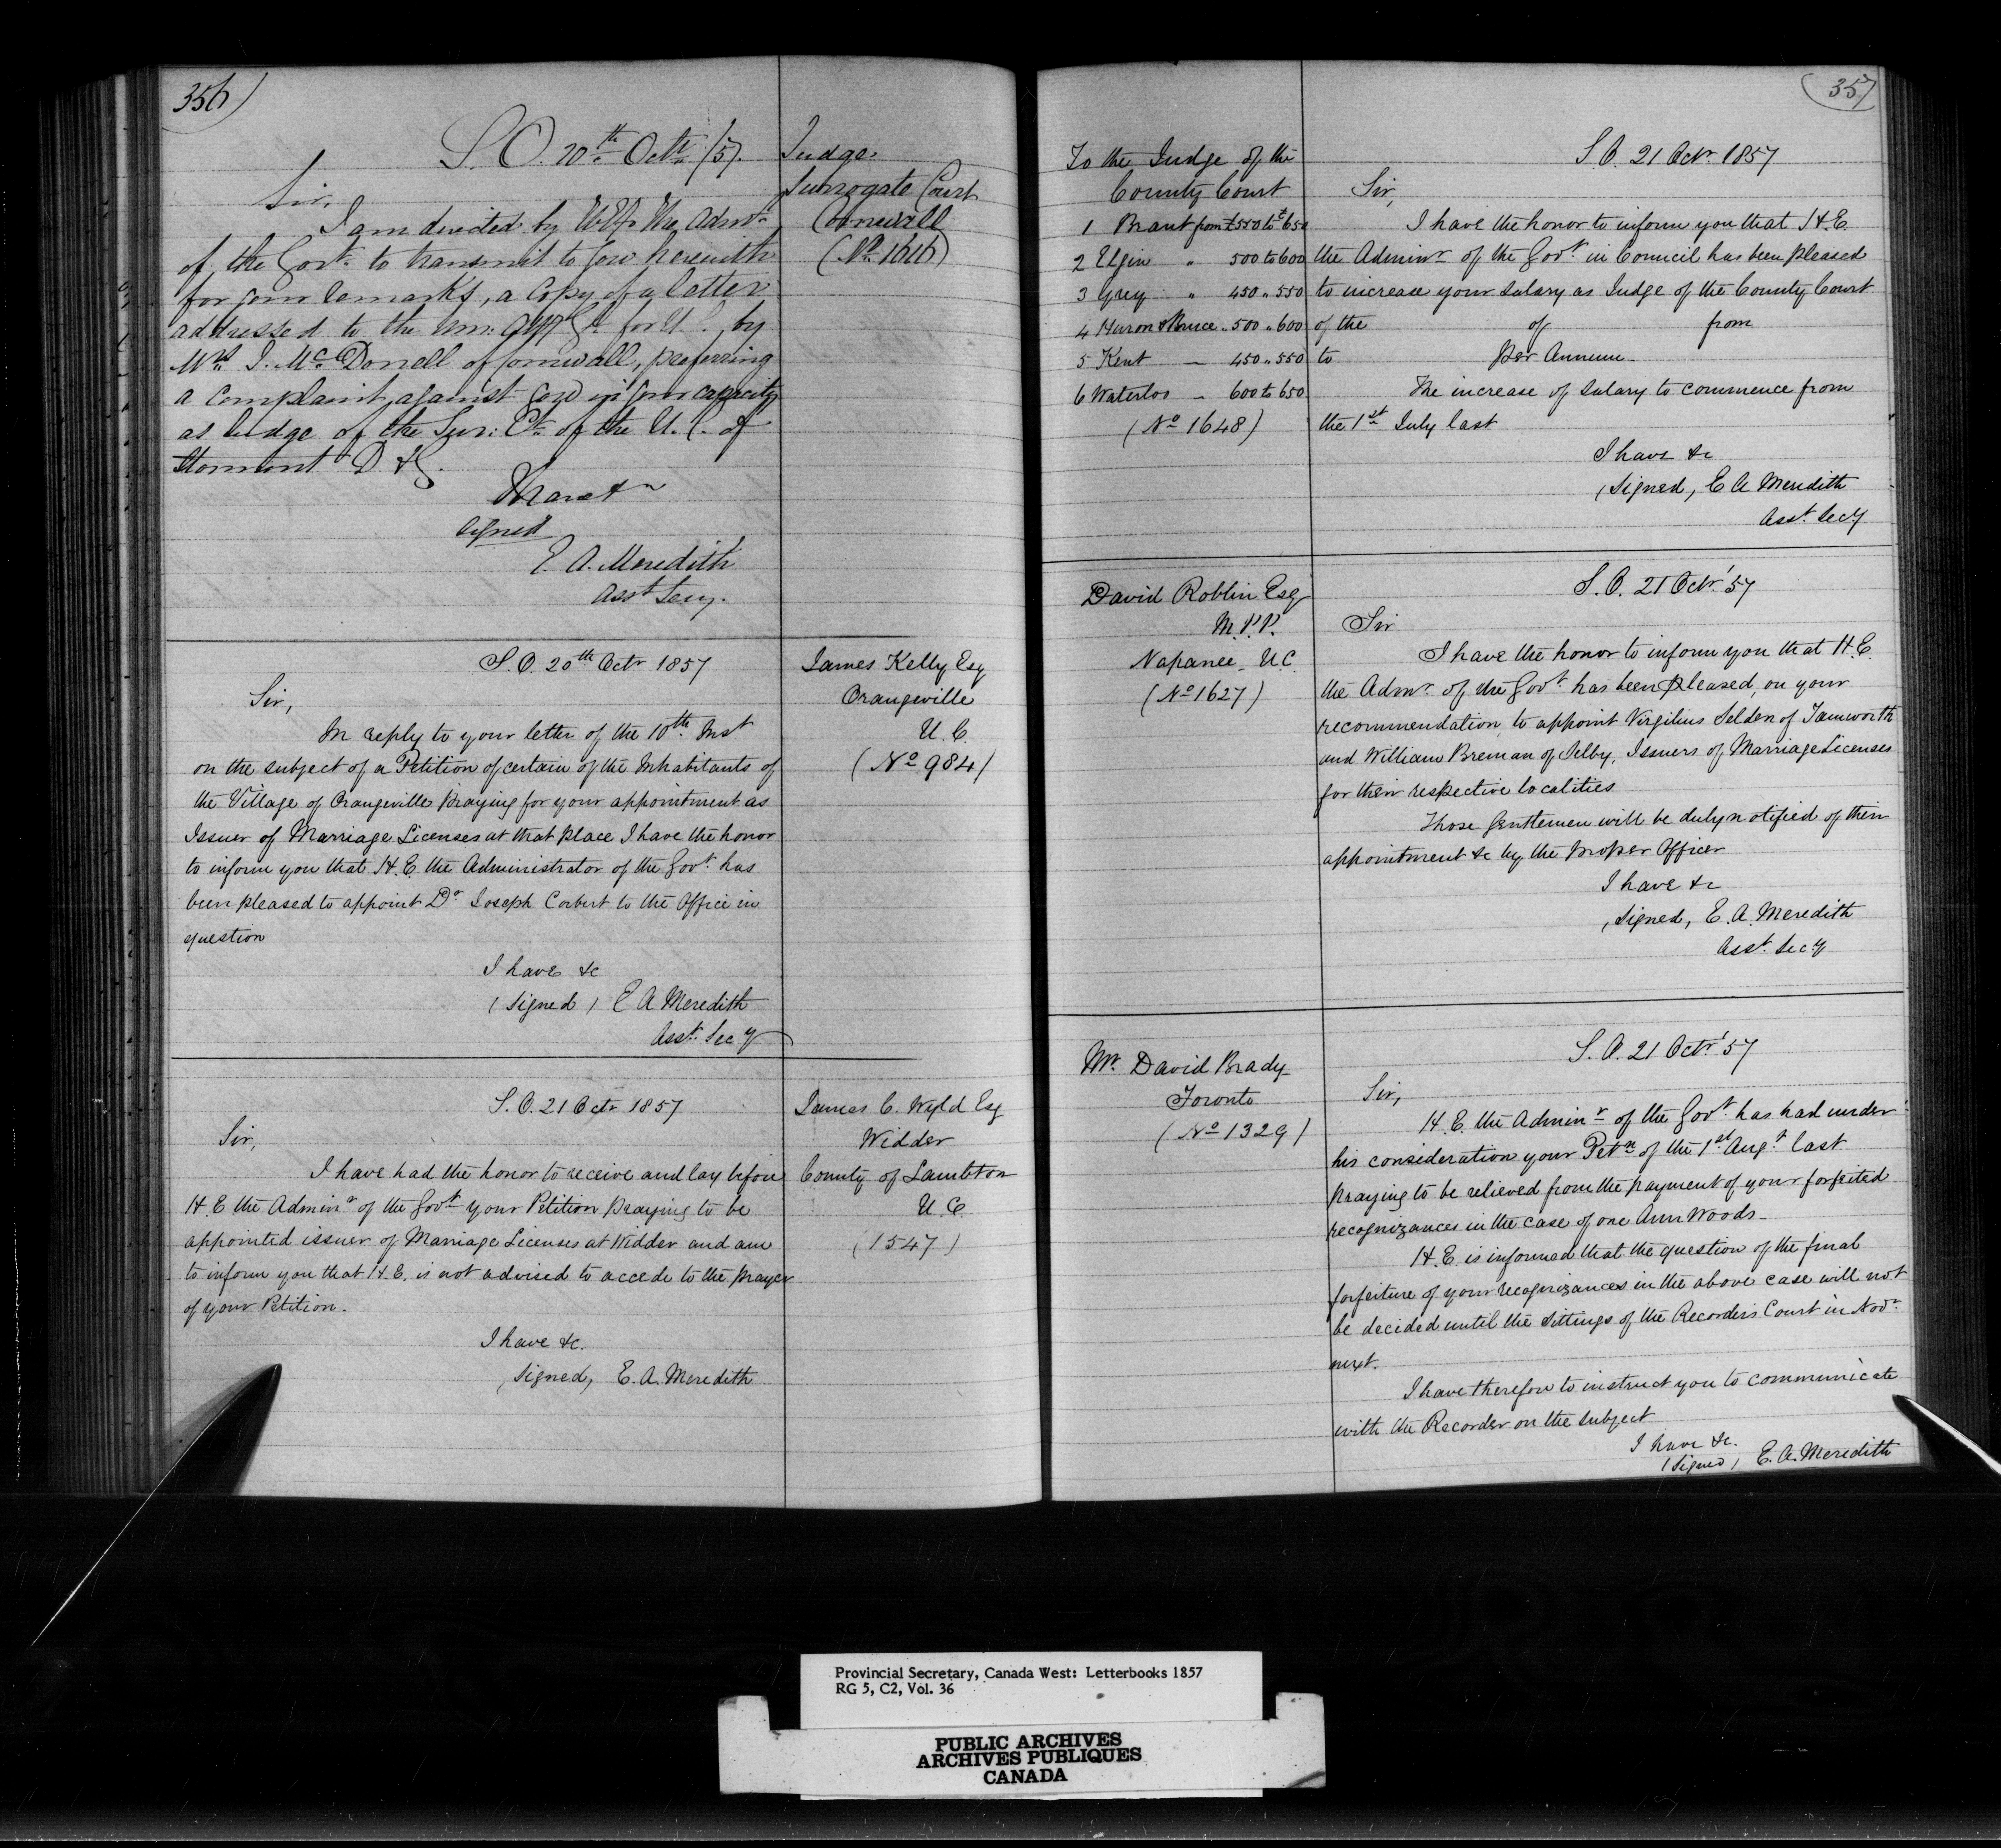 356)
S.O. 20th Octr /57.
Judge
Surrogate Court
Cornwall
(No 1616)
Sir,
I am directed by H.E. The Admr
of the Govt. to transmit to you herewith
for your remarks, a Copy of a letter
addressed to the Gl for U.C. by
Mrs J. McDonell of Cornwall, preferring
a complaint against you in your capacity
as Judge of the Sur: Ct. of the U.C. of
Stormont D & G.
I have &c
Signed
E. A. Meredith
Asst Secy.
S.O. 20th Octr 1857
James Kelly Esq
Orangeville
U.C.
(No 984)
Sir,
In reply to your letter of the 10th Inst
on the subject of a Petition of certain of the Inhabitants of
the Village of Orangeville praying for your appointment as
Issuer of Marriage Licenses at that place I have the honor
to inform you that H.E. the Administrator of the Govt. has
been pleased to appoint Dr Joseph Corbert to the Office in
question
I have &c
(Signed) E A Meredith
Asst. Secy
S.O. 21 Octr 1857
James C. Wyld Esq
Widder
County of Lambton
U.C.
(1547)
Sir,
I have had the honor to receive and lay before
H.E the Adminr of the Govt your Petition praying to be
appointed issuer of Marriage Licenses at Widder and am
to inform you that H.E. is not advised to accede to the prayer
of your Petition.
I have &c.
Signed, E. A. Meredith
357
To the Judge of the
County Court
1 Brant from £550 to £650
2 Elgin " 500 to 600
3 Grey " 450 " 550
4 Huron & Bruce " 500 " 600
5 Kent — 450 " 550
6 Waterloo — 600 to 650
(No 1648)
S.O. 21 Octr 1857
Sir,
I have the honor to inform you that H.E.
the Adminr of the Govt. in Council has been pleased
to increase your salary as Judge of the County Court
of the of from
to per Annum.
The increase of salary to commence from
the 1st July last
I have &c
(Signed, E A Meredith
Asst. Secy
David Roblin Esq
M.P.P.
Napanee U.C.
(No 1627)
S.O. 21 Octr '57
Sir
I have the honor to inform you that H.E.
the Admr. of the Govt. has been pleased, on your
recommendation, to appoint Virgilius Selden of Tamworth
and William Breman of Selby, Issuers of Marriage Licenses
for their respective localities
Those Gentlemen will be duly notified of their
appointment &c by the proper Officer
I have &c
(Signed, E. A. Meredith
Asst. Secy
Mr. David Brady
Toronto
(No 1329)
S.O. 21 Octr '57
Sir,
H.E. the Adminr of the Govt. has had under
his consideration your Petn of the 1st Augt last
praying to be relieved from the payment of your forfeited
recognizances in the case of one Ann Woods—
H.E. is informed that the question of the final
forfeiture of your recognizances in the above case will not
be decided until the sittings of the Recorders Court in Novr.
next.
I have therefore to instruct you to communicate
with the Recorder on the subject
I have &c.
(Signed) E. A. Meredith
Provincial Secretary, Canada West: Letterbooks 1857
RG 5, C2, Vol. 36
PUBLIC ARCHIVES
ARCHIVES PUBLIQUES
CANADA